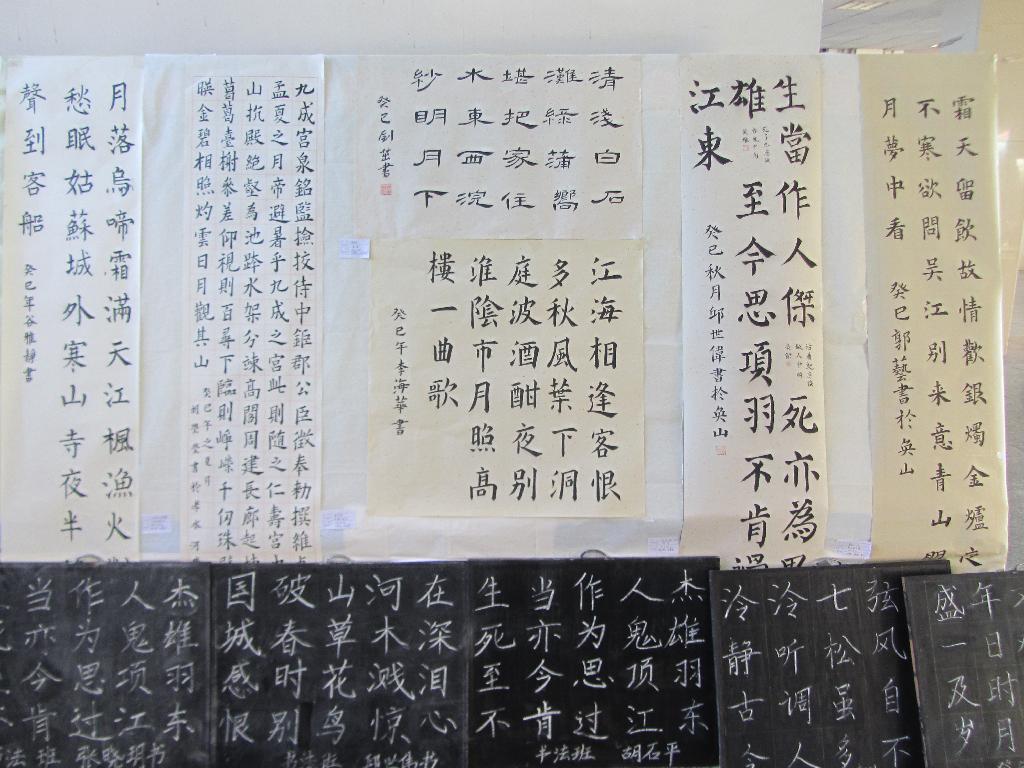 霜天留飲故情歡銀燭金爐定
不寒欲問吴江别来意青山
月夢中看
癸巳郭藝書於奂山
生當作人傑死亦為鬼
雄至今思項羽不肯過
江東
癸巳秋月邱世偉書於奂山
清淺白石
灘緑蒲嚮
堪把家住
水東西浣
紗明月下
癸巳剑書
江海相逢客恨
多秋風葉下洞
庭波酒酣夜别
淮陰市月照高
樓一曲歌
癸巳年李海華書
九成宫泉銘監撿挍侍中鉅郡公臣徵奉勅撰維
孟夏之月帝避暑乎九成之宫此則随之仁壽宫
山抗殿絶壑為池跨水架分竦高閣周建長廊起
葛臺榭參差仰視則百尋下臨則崢嶸千仞珠
暎金碧相照灼雲日月觀其山
月落烏啼霜滿天江楓漁火
愁眠姑蘇城外寒山寺夜半
聲到客船
癸巳年谷雅靜書
年日时月
盛一及岁
弦风自不
七松虽多
泠听调人
泠静古今
杰雄羽东
人鬼顶江
作为思过
当亦今肯
生死至不
书法班 胡石平
在深泪心
河木溅惊
山草花鸟
破春时别
国城感恨
杰雄羽东
人鬼项江
作为思过
当亦今肯
法班 张晓玥书